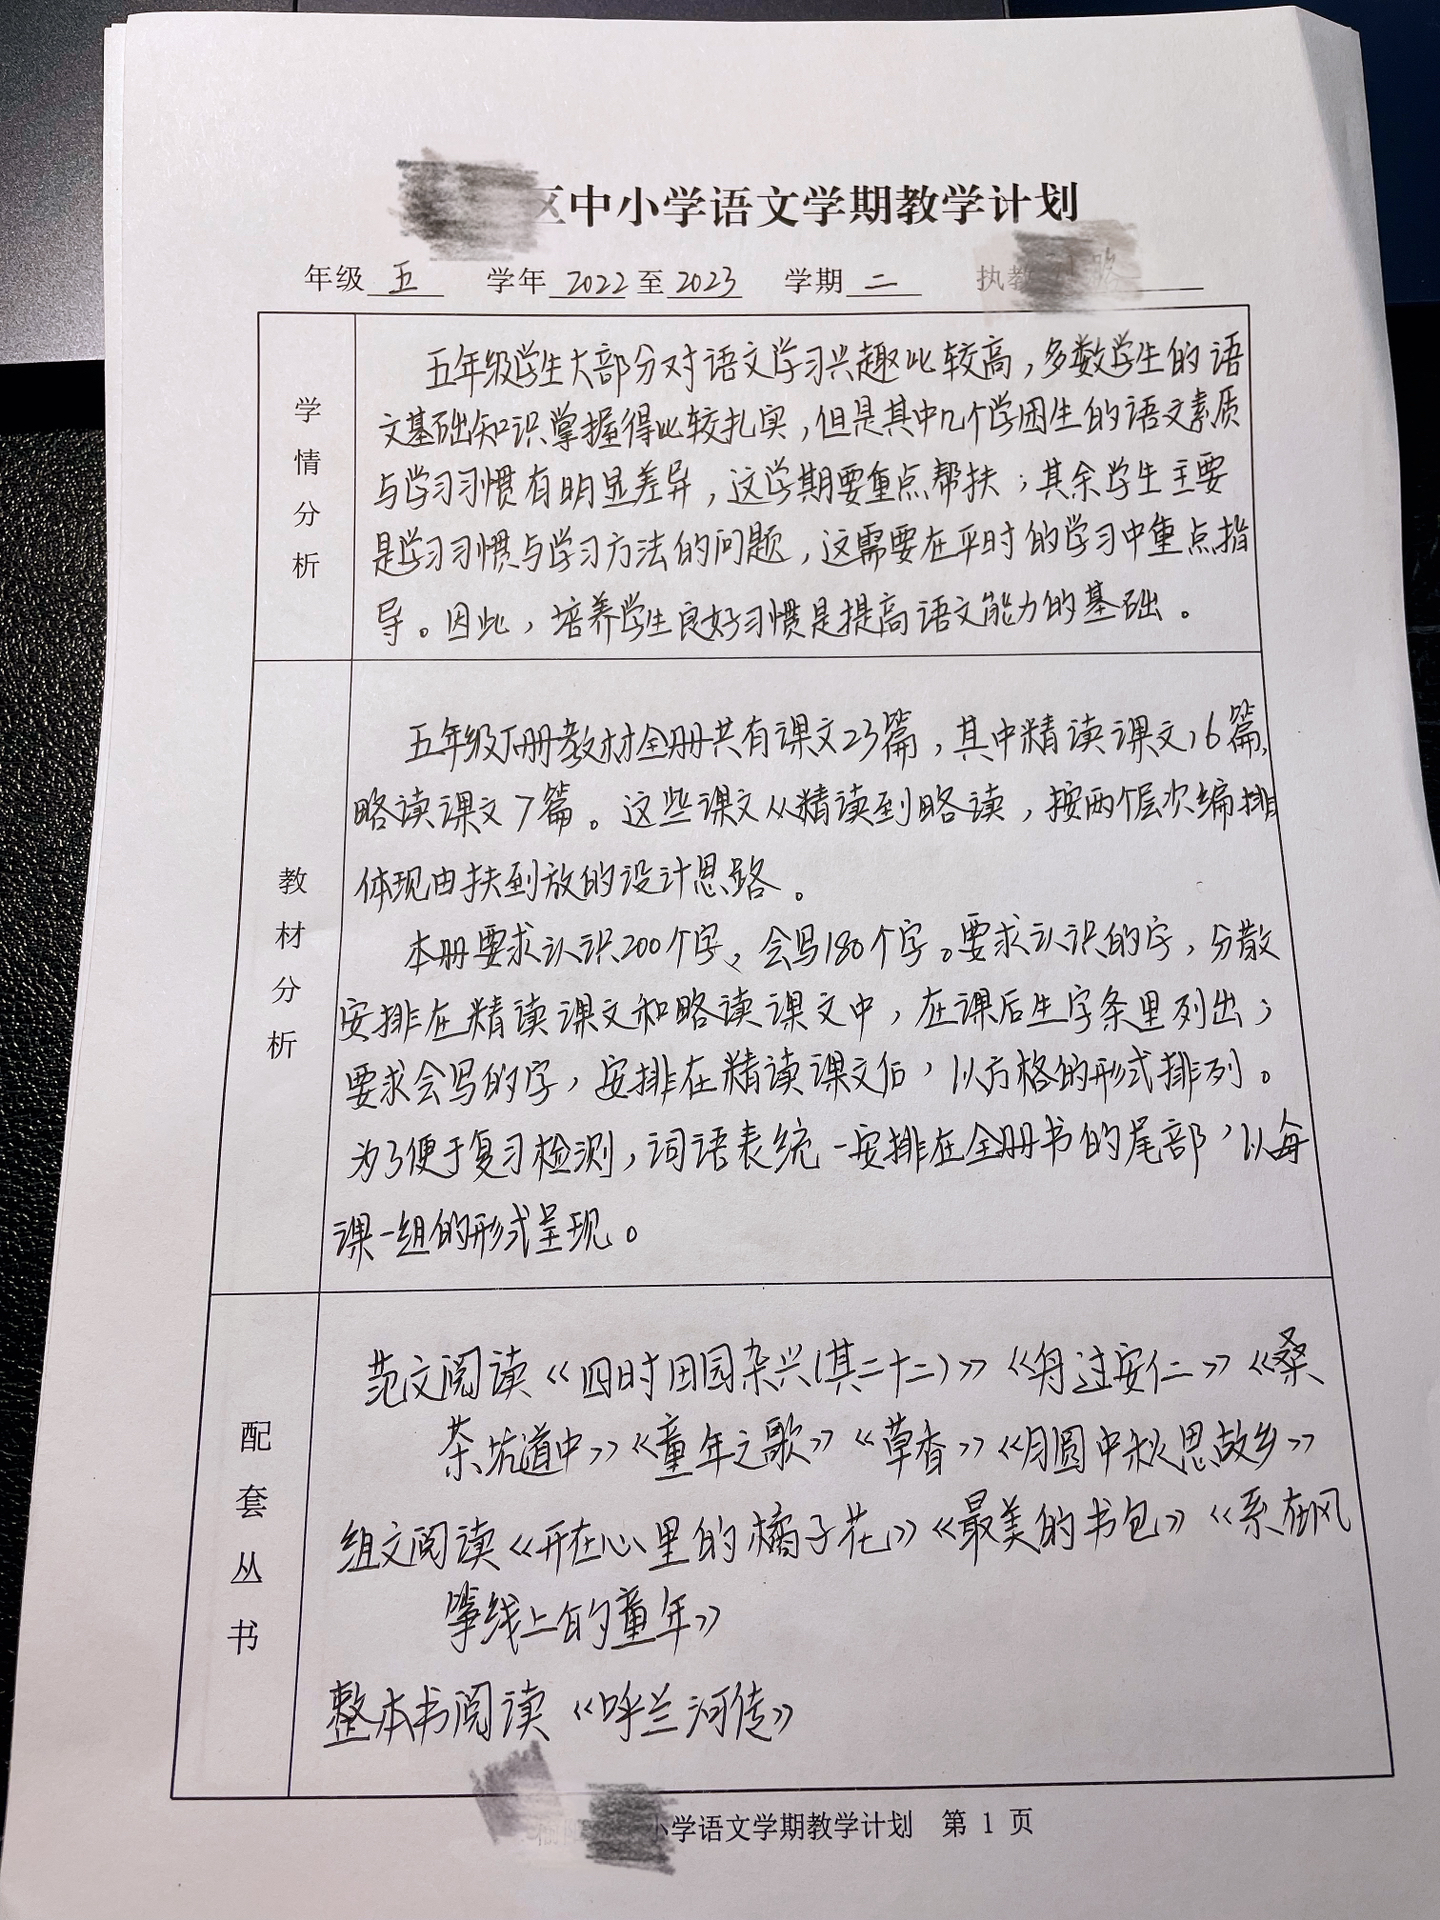 区中小学语文学期教学计划
年级 五 学年 2022 至 2023 学期 二 执教
学情分析
五年级学生大部分对语文学习兴趣比较高，多数学生的语
文基础知识掌握得比较扎实，但是其中几个学困生的语文素质
与学习习惯有明显差异，这学期要重点帮扶；其余学生主要
是学习习惯与学习方法的问题，这需要在平时的学习中重点指
导。因此，培养学生良好习惯是提高语文能力的基础。
教材分析
五年级下册教材全册共有课文23篇，其中精读课文16篇，
略读课文7篇。这些课文从精读到略读，按两个层次编排
体现由扶到放的设计思路。
本册要求认识200个字、会写180个字。要求认识的字，分散
安排在精读课文和略读课文中，在课后生字条里列出；
要求会写的字，安排在精读课文后，以方格的形式排列。
为了便于复习检测，词语表统一安排在全册书的尾部，以每
课一组的形式呈现。
配套丛书
范文阅读《四时田园杂兴(其二十二)》《舟过安仁》《桑
茶坑道中》《童年之歌》《草香》《月圆中秋思故乡》
组文阅读《开在心里的橘子花》《最美的书包》《系在风
筝线上的童年》
整本书阅读《呼兰河传》
小学语文学期教学计划 第 1 页